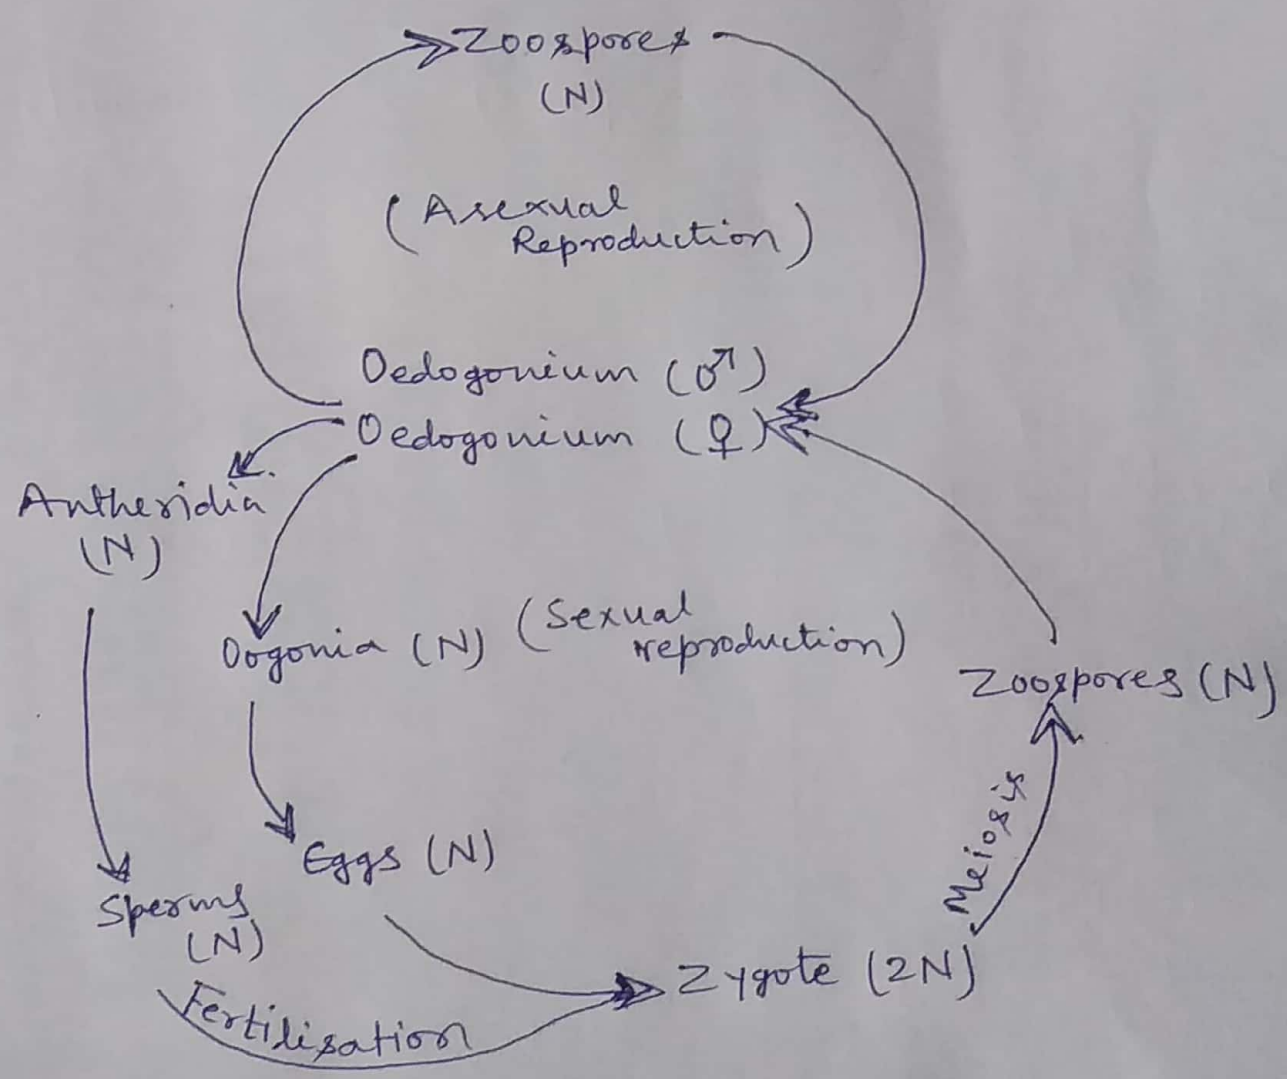 Zoospores
(N)
(Asexual
Reproduction)
Oedogonium (♂)
Oedogonium (♀)
Antheridia
(N)
Oogonia (N)
(Sexual
reproduction)
Zoospores (N)
Meiosis
Eggs (N)
Sperms
(N)
Zygote (2N)
Fertilisation